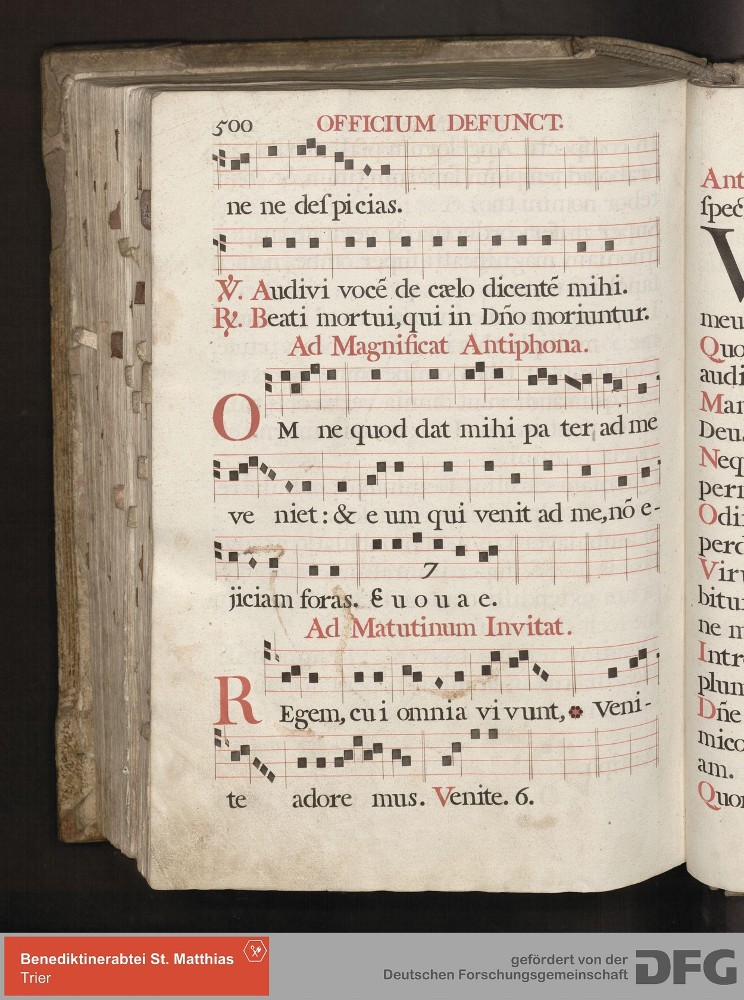 500 OFFICIUM DEFUNCT.
ne ne despicias.
℣. Audivi vocẽ de cælo dicentẽ mihi.
℟. Beati mortui, qui in Dño moriuntur.
Ad Magnificat Antiphona.
OM ne quod dat mihi pa ter, ad me
ve niet: & e um qui venit ad me, nõ e-
jiciam foras. E u o u a e.
7
Ad Matutinum Invitat.
REgem, cu i omnia vi vunt, * Veni-
te adore mus. Venite. 6.
Ant
spec
V
meu
Quo
audi
Man
Deus
Neq
perm
Odi
perd
Viru
bitu
ne m
Intr
plum
Dñe
mico
am.
Quo
Benediktinerabtei St. Matthias
Trier
gefördert von der
Deutschen Forschungsgemeinschaft DFG